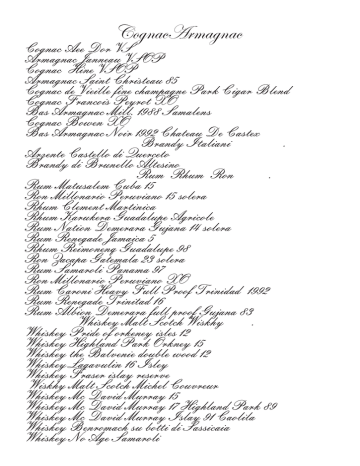 CognacArmagnac
Cognac Ace Dor V.S
Armagnac Janneau V.SOP
Cognac Hine V.SOP
Armagnac Saint Christeau 85
Cognac de Vieille fine champagne Park Cigar Blend
Cognac Francois Peyrot XO
Bas Armagnac Mill. 1988 Samalens
Cognac Bowen XO
Bas Armagnac Noir 1992 Chateau De Castex
Brandy Italiani .
Argente Castello di Querceto
Brandy di Brunello Altesino
Rum Rhum Ron .
Rum Matusalem Cuba 15
Ron Millonario Peruviano 15 solera
Rhum Clement Martinica
Rhum Karukera Guadalupe Agricole
Rum Nation Demerara Gujana 14 solera
Rum Renegade Jamaica 5
Rhum Reimoneng Guadalupe 98
Ron Zacapa Gatemala 23 solera
Rum Samaroli Panama 97
Ron Millonario Peruviano XO
Rum Caroni Heavy Full Proof Trinidad 1992
Rum Renegade Trinitad 16
Rum Albion Demerara full proof Gujana 83
Whiskey Malt Scotch Wiskhy .
Whiskey Pride of orkeney isles 12
Whiskey Highland Park Orkney 15
Whiskey the Balvenie double wood 12
Whiskey Lagavulin 16 Isley
Whiskey Fraser islay reserve
Wiskhy Malt Scotch Michel Couvreur
Whiskey Mc David Murray 15
Whiskey Mc David Murray 17 Highland Park 89
Whiskey Mc David Murray Islay 91 Caolila
Whiskey Benromach su botti di Sassicaia
Whiskey No Age Samaroli